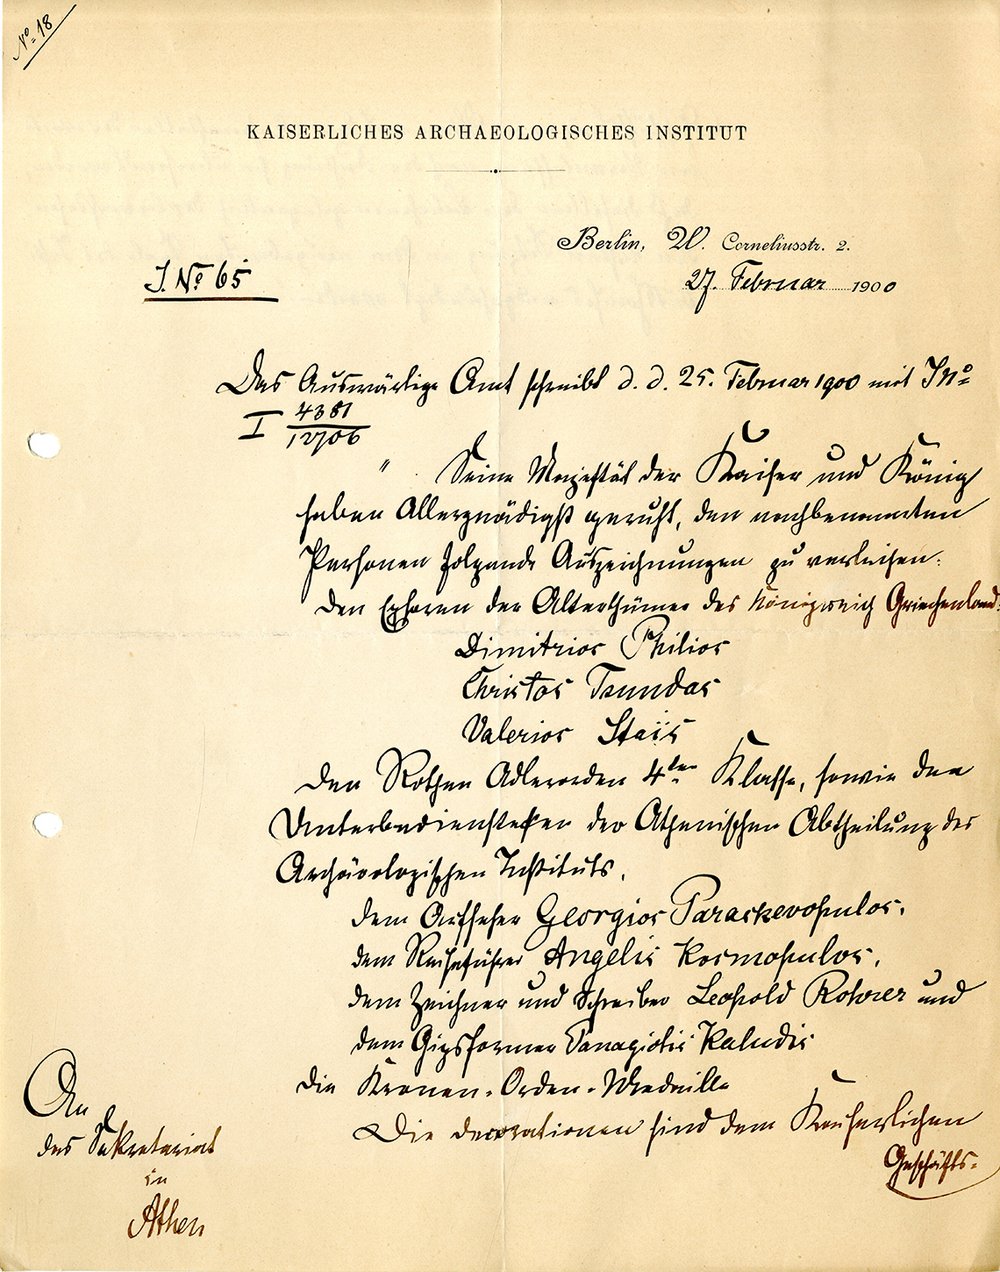 No 18
KAISERLICHES ARCHAEOLOGISCHES INSTITUT
Berlin, W. Corneliusstr. 2.
J. No 65
27. Februar 1900
Das Auswärtige Amt schreibt d. d. 25. Februar 1900 mit J No
I 4381
12706
" Seine Majestät der Kaiser und König
haben Allergnädigst geruht, den nachbenannten
Personen folgende Auszeichnungen zu verleihen:
den Ephoren der Alterthümer des Königreich Griechenland:
Dimitrios Philios
Christos Tsundas
Valerios Staïs
den Rothen Adlerorden 4ter Klasse, sowie den
Unterbediensteten der Athenischen Abtheilung des
Archäologischen Instituts,
dem Aufseher Georgios Paraskevopulos,
dem Reiseführer Angelis Kosmopulos,
dem Zeichner und Schreiber Leopold Rohrer und
dem Gipsformer Panagiotis Kaludis
die Kronen-Orden-Medaille
Die Decorationen sind dem Kaiserlichen
Geschäfts-
An
das Sekretariat
in
Athen